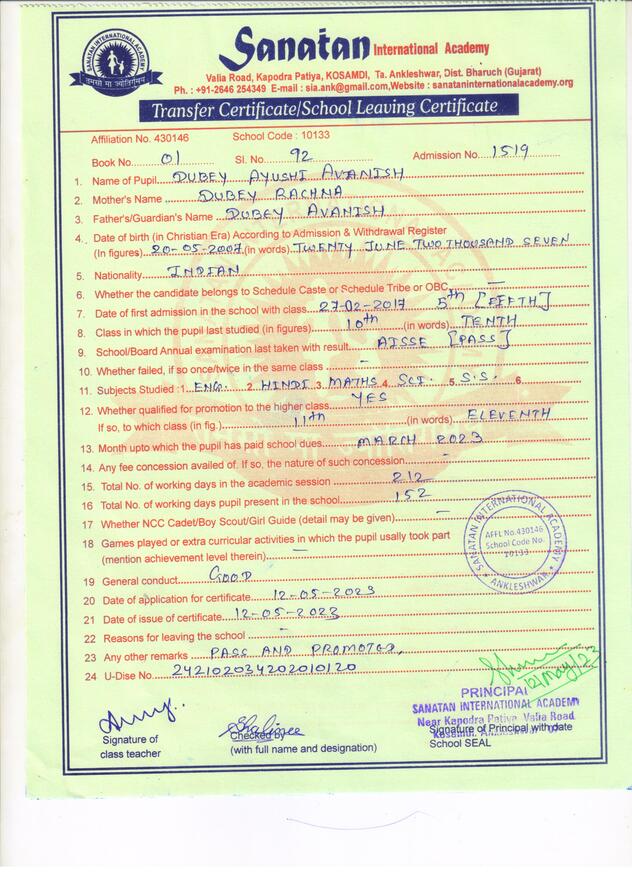 SANATAN INTERNATIONAL ACADEMY
तमसो मा ज्योतिर्गमय
Sanatan International Academy
Valia Road, Kapodra Patiya, KOSAMDI, Ta. Ankleshwar, Dist. Bharuch (Gujarat)
Ph. : +91-2646 254349 E-mail : sia.ank@gmail.com,Website : sanataninternationalacademy.org
Transfer Certificate/School Leaving Certificate
Affiliation No. 430146 School Code : 10133
Book No. 01 Sl. No. 92 Admission No. 1519
1. Name of Pupil DUBEY AYUSHI AVANISH
2. Mother's Name DUBEY RACHNA
3. Father's/Guardian's Name DUBEY AVANISH
4. Date of birth (in Christian Era) According to Admission & Withdrawal Register
(In figures) 20-05-2007 (in words) TWENTY JUNE TWO THOUSAND SEVEN
5 Nationality INDIAN
6 Whether the candidate belongs to Schedule Caste or Schedule Tribe or OBC —
7 Date of first admission in the school with class 27-02-2017 5th [FIFTH]
8 Class in which the pupil last studied (in figures) 10th (in words) TENTH
9 School/Board Annual examination last taken with result AISSE [PASS]
10. Whether failed, if so once/twice in the same class -
11. Subjects Studied : 1 ENG. 2. HINDI 3. MATHS 4. SCI. 5. S.S. 6.
12. Whether qualified for promotion to the higher class YES
If so, to which class (in fig.) 11th (in words) ELEVENTH
13. Month upto which the pupil has paid school dues MARCH 2023
14. Any fee concession availed of. If so, the nature of such concession -
15. Total No. of working days in the academic session 212
16 Total No. of working days pupil present in the school 152
17 Whether NCC Cadet/Boy Scout/Girl Guide (detail may be given) —
18 Games played or extra curricular activities in which the pupil usally took part
(mention achievement level therein) —
19 General conduct GOOD
20 Date of application for certificate 12-05-2023
21 Date of issue of certificate 12-05-2023
22 Reasons for leaving the school -
23 Any other remarks PASS AND PROMOTED,
24 U-Dise No. 242102034202010120
SANATAN INTERNATIONAL ACADEMY
AFFL No.430146
School Code No.
10133
ANKLESHWAR
12/May/23
PRINCIPAL
SANATAN INTERNATIONAL ACADEMY
Near Kapodra Patiya, Valia Road
Kosamdi, Ankleshwar
Signature of
class teacher
Checked by
(with full name and designation)
Signature of Principal with date
School SEAL